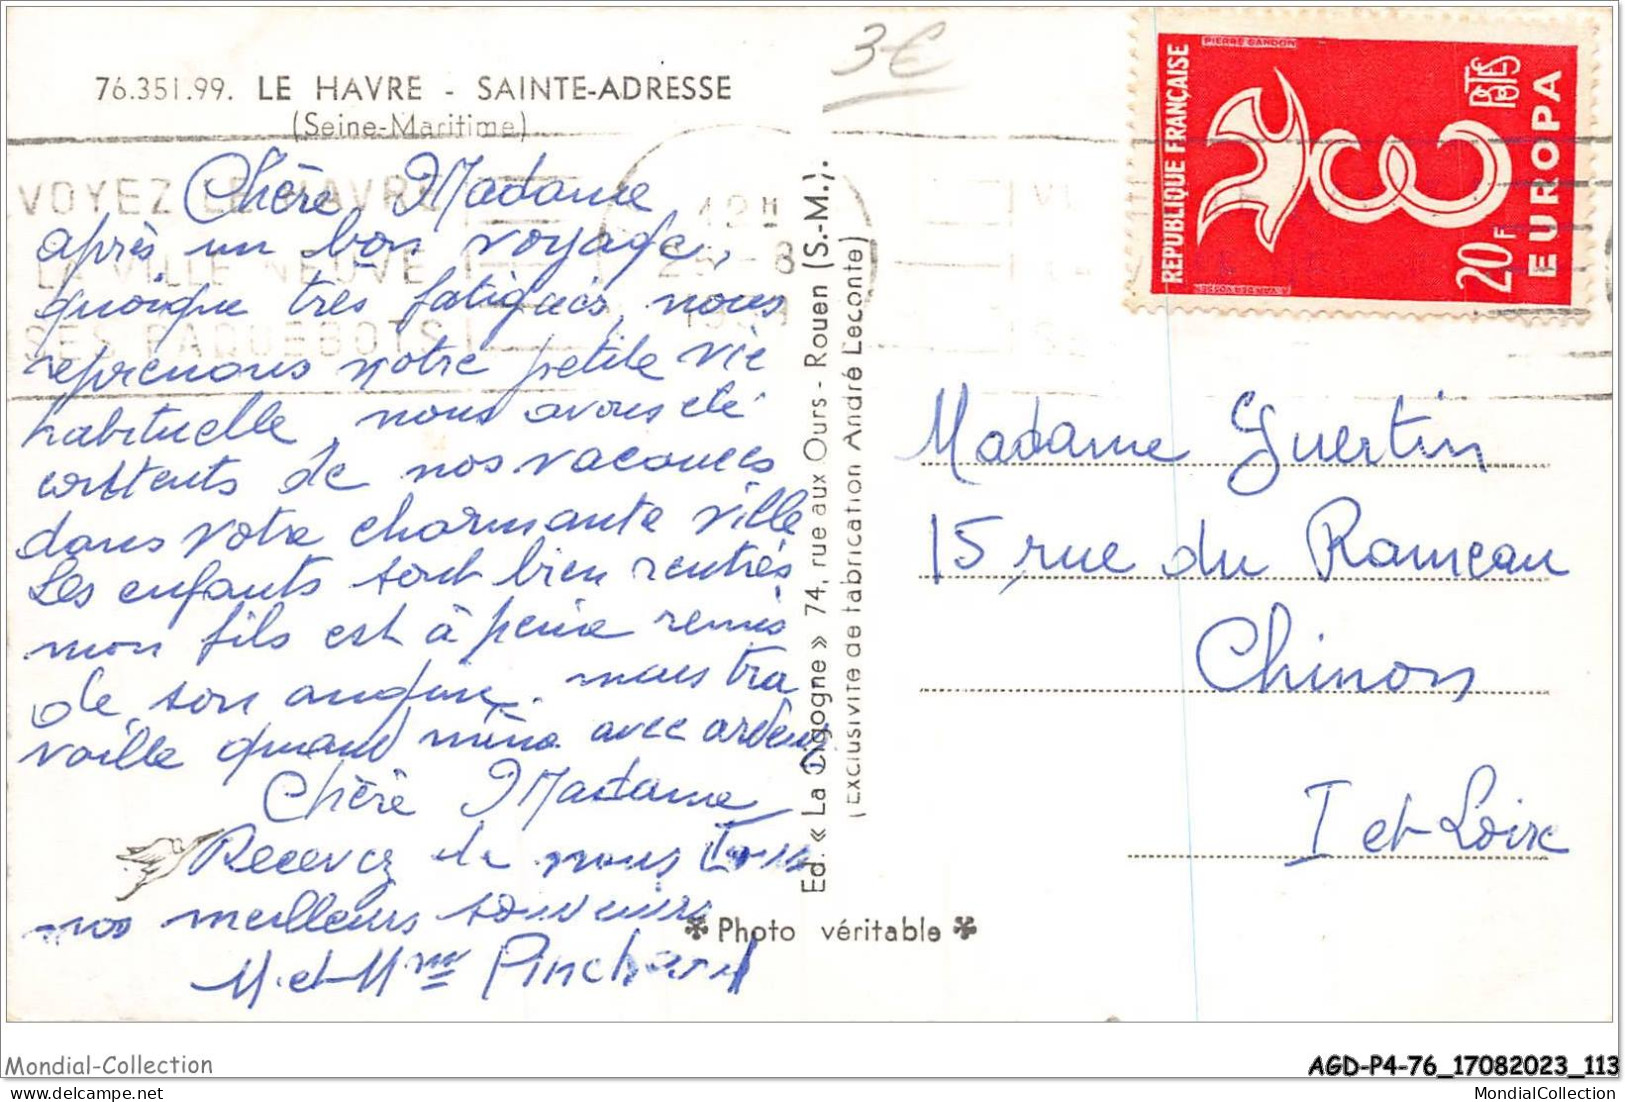 3€
76.351.99. LE HAVRE - SAINTE-ADRESSE
(Seine-Maritime)
VOYEZ LE HAVRE
LA VILLE NEUVE
SES PAQUEBOTS
12H
25-8
19
PIERRE GANDON
REPUBLIQUE FRANÇAISE
POSTES
EUROPA
20F
Chère Madame
après un bon voyage,
quoique très fatigués, nous
reprenons notre petite vie
habituelle, nous avons été
contents de nos vacances
dans votre charmante ville
Les enfants sont bien rentrés
mon fils est à peine remis
de son angine. mais tra
vaille quand même avec ardeur
Chère Madame
Recevez de nous tous
nos meilleurs souvenirs
M. et Mme Pinchard
Ed. « La Cigogne » 74, rue aux Ours - Rouen (S.-M.).
(Exclusivité de fabrication André Leconte)
* Photo véritable *
Madame Guertin
15 rue du Rameau
Chinon
I et Loire
Mondial-Collection
AGD-P4-76_17082023_113
MondialCollection